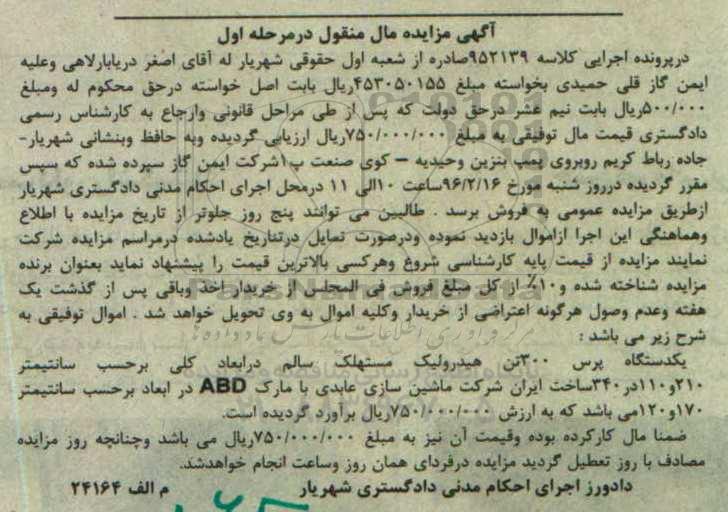 آگهی مزایده مال منقول درمرحله اول
درپرونده اجرایی کلاسه ۹۵۲۱۳۹صادره از شعبه اول حقوقی شهریار له آقای اصغر دریابارلاهی وعلیه
ایمن گاز قلی حمیدی بخواسته مبلغ ۴۵۳۰۵۰۱۵۵ریال بابت اصل خواسته درحق محکوم له ومبلغ
۵۰۰/۰۰۰ریال بابت نیم عشر درحق دولت که پس از طی مراحل قانونی وارجاع به کارشناس رسمی
دادگستری قیمت مال توقیفی به مبلغ ۷۵۰/۰۰۰/۰۰۰ریال ارزیابی گردیده وبه حافظ وبنشانی شهریار-
جاده رباط کریم روبروی پمپ بنزین وحیدیه – کوی صنعت پ۱شرکت ایمن گاز سپرده شده که سپس
مقرر گردیده درروز شنبه مورخ ۹۶/۲/۱۶ساعت ۱۰الی ۱۱ درمحل اجرای احکام مدنی دادگستری شهریار
ازطریق مزایده عمومی به فروش برسد . طالبین می توانند پنج روز جلوتر از تاریخ مزایده با اطلاع
وهماهنگی این اجرا ازاموال بازدید نموده ودرصورت تمایل درتاریخ یادشده درمراسم مزایده شرکت
نمایند مزایده از قیمت پایه کارشناسی شروع وهرکسی بالاترین قیمت را پیشنهاد نماید بعنوان برنده
مزایده شناخته شده و۱۰٪ از کل مبلغ فروش فی المجلس از خریدار اخذ وباقی پس از گذشت یک
هفته وعدم وصول هرگونه اعتراضی از خریدار وکلیه اموال به وی تحویل خواهد شد . اموال توقیفی به
شرح زیر می باشد :
یکدستگاه پرس ۳۰۰تن هیدرولیک مستهلک سالم درابعاد کلی برحسب سانتیمتر
۲۱۰و۱۱۰در۳۴۰ساخت ایران شرکت ماشین سازی عابدی با مارک ABD در ابعاد برحسب سانتیمتر
۱۷۰و۱۲۰می باشد که به ارزش ۷۵۰/۰۰۰/۰۰۰ریال برآورد گردیده است.
ضمنا مال کارکرده بوده وقیمت آن نیز به مبلغ ۷۵۰/۰۰۰/۰۰۰ریال می باشد وچنانچه روز مزایده
مصادف با روز تعطیل گردید مزایده درفردای همان روز وساعت انجام خواهدشد.
دادورز اجرای احکام مدنی دادگستری شهریار م الف ۲۴۱۶۴